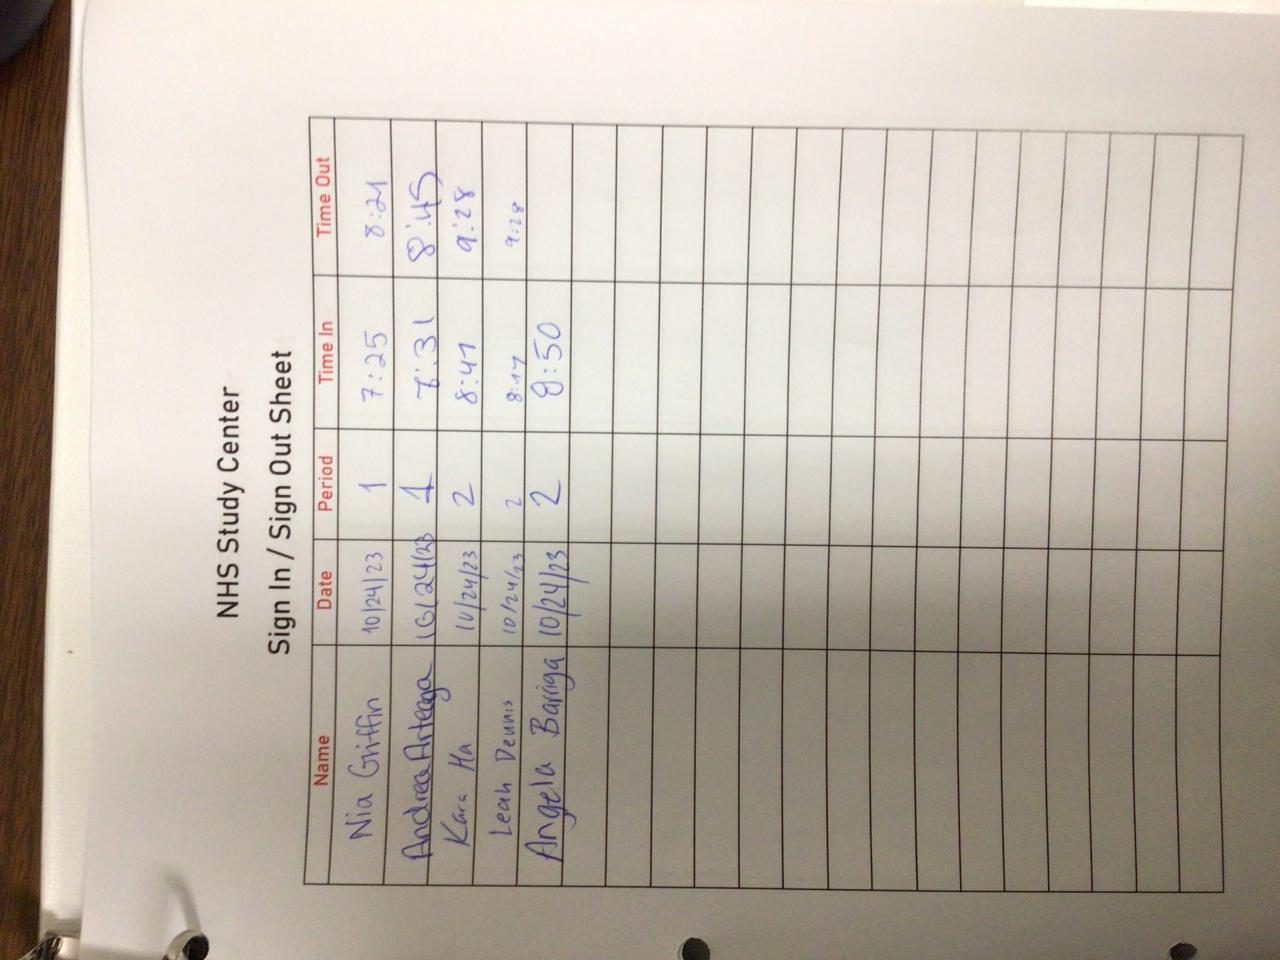 NHS Study Center
Sign In / Sign Out Sheet
Name Date Period Time In Time Out
Nia Griffin 10/24/23 1 7:25 8:21
Andrea Arteaga 10/24/23 1 7:31 8:45
Kara Ha 10/24/23 2 8:47 9:28
Leah Dennis 10/24/23 2 8:47 9:28
Angela Barriga 10/24/23 2 8:50